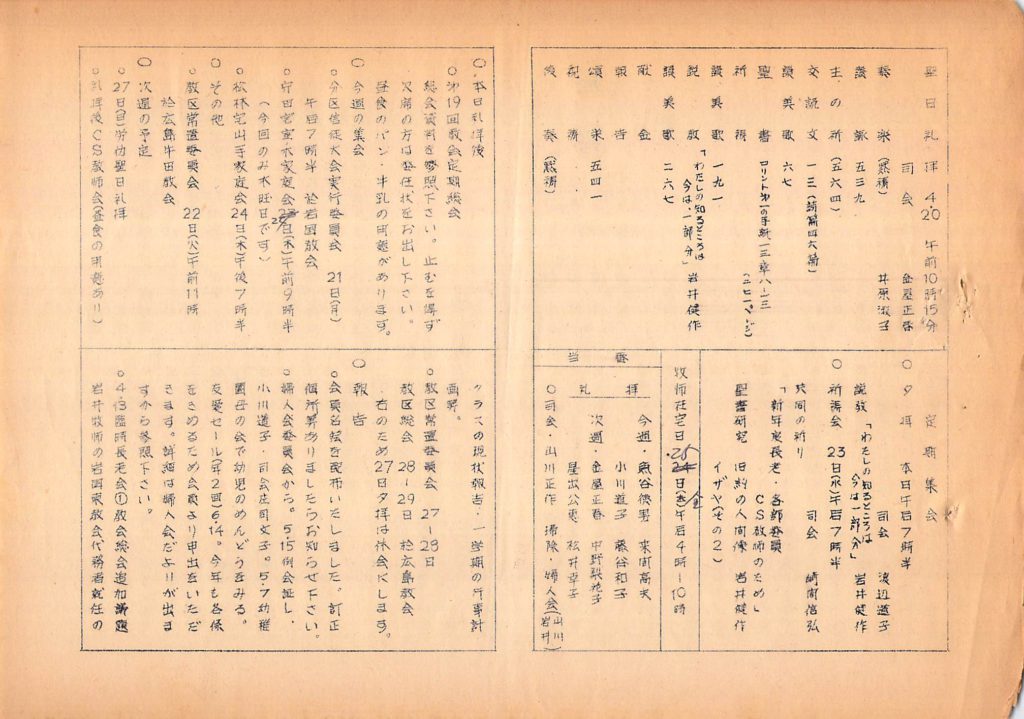 聖日礼拝 4/20 午前10時15分
司会 金屋正春
奏楽 (黙祷) 井原淑子
讃詠 五三九
主の祈 (五六四)
交読文 一三 (詩篇四六篇)
讃美歌 六七
聖書 コリント第一の手紙一三章八-一三
祈祷
讃美歌 一九一
説教 「わたしの知るところは
今は、一部分」 岩井健作
讃美歌 二六七
献金
報告
頌栄 五四一
祝祷
後奏 (黙祷)
定期集会
○夕拝 本日午后7時半
司会 渡辺道子
説教 「わたしの知るところは
今は一部分」 岩井健作
○祈祷会 23日(水)午后7時半
司会 崎間信弘
共同の祈り
「新年度長老・各部委員
CS教師のため」
聖書研究 旧約の人間像 岩井健作
イザヤ(その2)
牧師在宅日 25日(金)午后4時-10時
当番
礼拝
小川道子 藤谷和子
次週・金屋正春
星出公恵 松井幸子
○司会・山川正作 掃除・婦人会(山川
岩井)
○本日礼拝後
○第19回教会定期総会
総会資料を参照下さい。止むを得ず
欠席の方は委任状をお出し下さい。
昼食のパン・牛乳の用意があります。
○今週の集会
○分区信徒大会実行委員会 21日(月)
午后7時半 於岩国教会
(今回のみ木旺日です)
○松林定山手家庭会 24日(木)午後7時半
○その他
教区常置委員会 22日(火)午前11時
於広島牛田教会
○次週の予定
○27日(日)労仂聖日礼拝
○礼拝後CS教師会(昼食の用意あり)
クラスの現状報告・一学期の行事計
画等。
○教区常置委員会 27-28日
教区総会 28-29日 於広島教会
右のため27日夕拝は休会にします。
○報告
○会員名簿を配布いたしました。訂正
個所等ありましたらお知らせ下さい。
○婦人会委員会から。5.15例会証し・
小川道子・司会庄司文子。5.7幼稚
園母の会で幼児のめんどうをみる。
友愛セール(年2回)6.14。今年も各係
をきめるため会員より申出をいただ
きます。詳細は婦人会だよりが出ま
すから参照下さい。
○4.13臨時長老会①教会総会追加議題
岩井牧師の岩国東教会代務者就任の